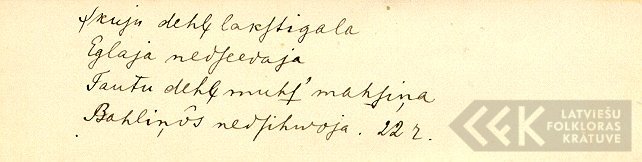 Skuju dehļ lakstigala
Eglaja nedseedaja
Tautu dehļ muhs' mahsiņa
Bahliņôs nedsihwoja. 22 r.
LATVIEŠU
FOLKLORAS
KRĀTUVE